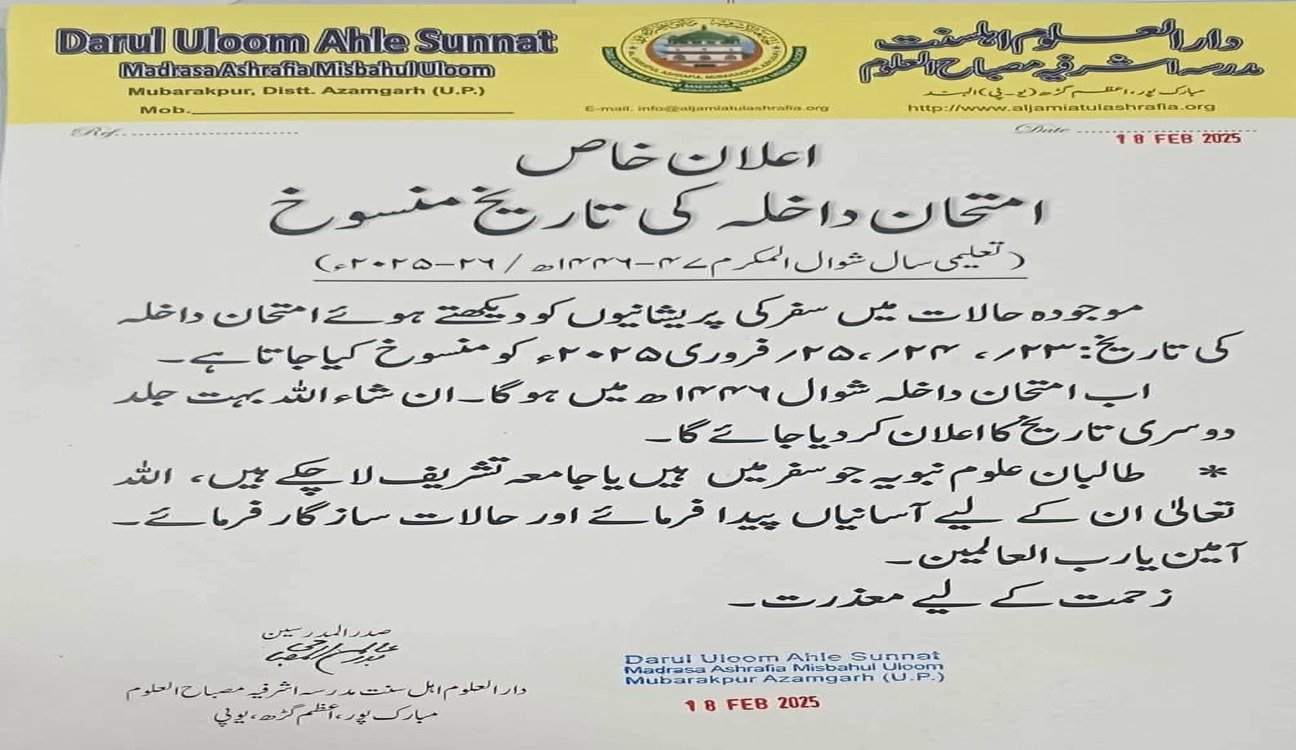 Darul Uloom Ahle Sunnat
Madrasa Ashrafia Misbahul Uloom
Mubarakpur, Distt. Azamgarh (U.P.)
Mob.
E-mail. info@aljamiatulashrafia.org
دارالعلوم اہلسنت
مدرسہ اشرفیہ مصباح العلوم
مبارک پور، اعظم گڑھ (یو۔پی) الہند
http://www.aljamiatulashrafia.org
Ref.
Date
18 FEB 2025
اعلان خاص
امتحان داخلہ کی تاریخ منسوخ
(تعلیمی سال شوال المکرم ۴۷-۱۴۴۶ھ / ۲۶-۲۰۲۵ء)
موجودہ حالات میں سفر کی پریشانیوں کو دیکھتے ہوئے امتحان داخلہ
کی تاریخ: ۲۳؍، ۲۴؍، ۲۵؍ فروری ۲۰۲۵ء کو منسوخ کیا جاتا ہے۔
اب امتحان داخلہ شوال ۱۴۴۶ھ میں ہوگا۔ ان شاء اللہ بہت جلد
دوسری تاریخ کا اعلان کر دیا جائے گا۔
* طالبان علوم نبویہ جو سفر میں ہیں یا جامعہ تشریف لا چکے ہیں، اللہ
تعالیٰ ان کے لیے آسانیاں پیدا فرمائے اور حالات سازگار فرمائے۔
آمین یا رب العالمین۔
زحمت کے لیے معذرت۔
صدر المدرسین
دارالعلوم اہل سنت مدرسہ اشرفیہ مصباح العلوم
مبارک پور، اعظم گڑھ، یوپی
Darul Uloom Ahle Sunnat
Madrasa Ashrafia Misbahul Uloom
Mubarakpur Azamgarh (U.P.)
18 FEB 2025